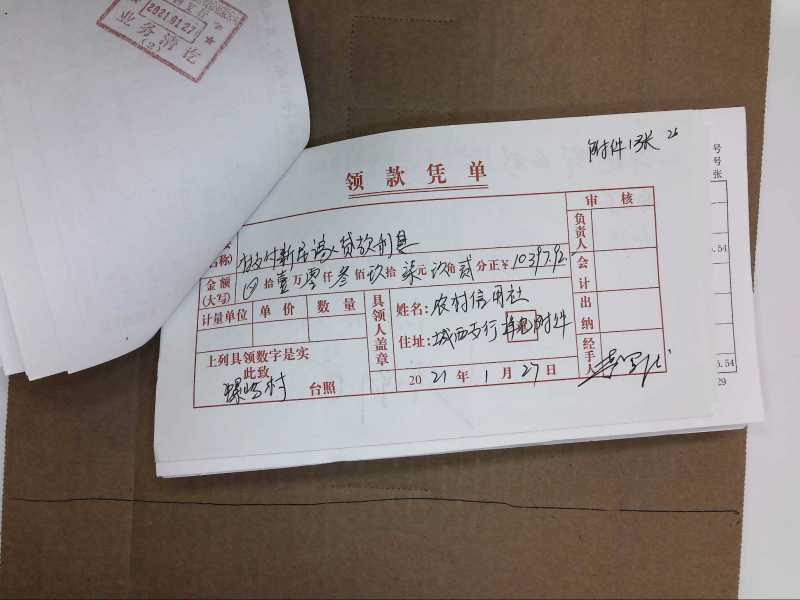 2021.01.27
业务清讫
(2)
附件13张 26
领款凭单
审核
号
号
张
名称) 支付新居 贷款利息
负责人
金额(大写) 拾壹万零仟叁佰玖拾柒元玖角贰分正¥10397.92
会计
计量单位 单价 数量
具领人盖章
姓名: 农村信用社
住址: 城西支行 附件
出纳
上列具领数字是实
此致
村 台照
2021年1月27日
经手人
.54
5.54
29